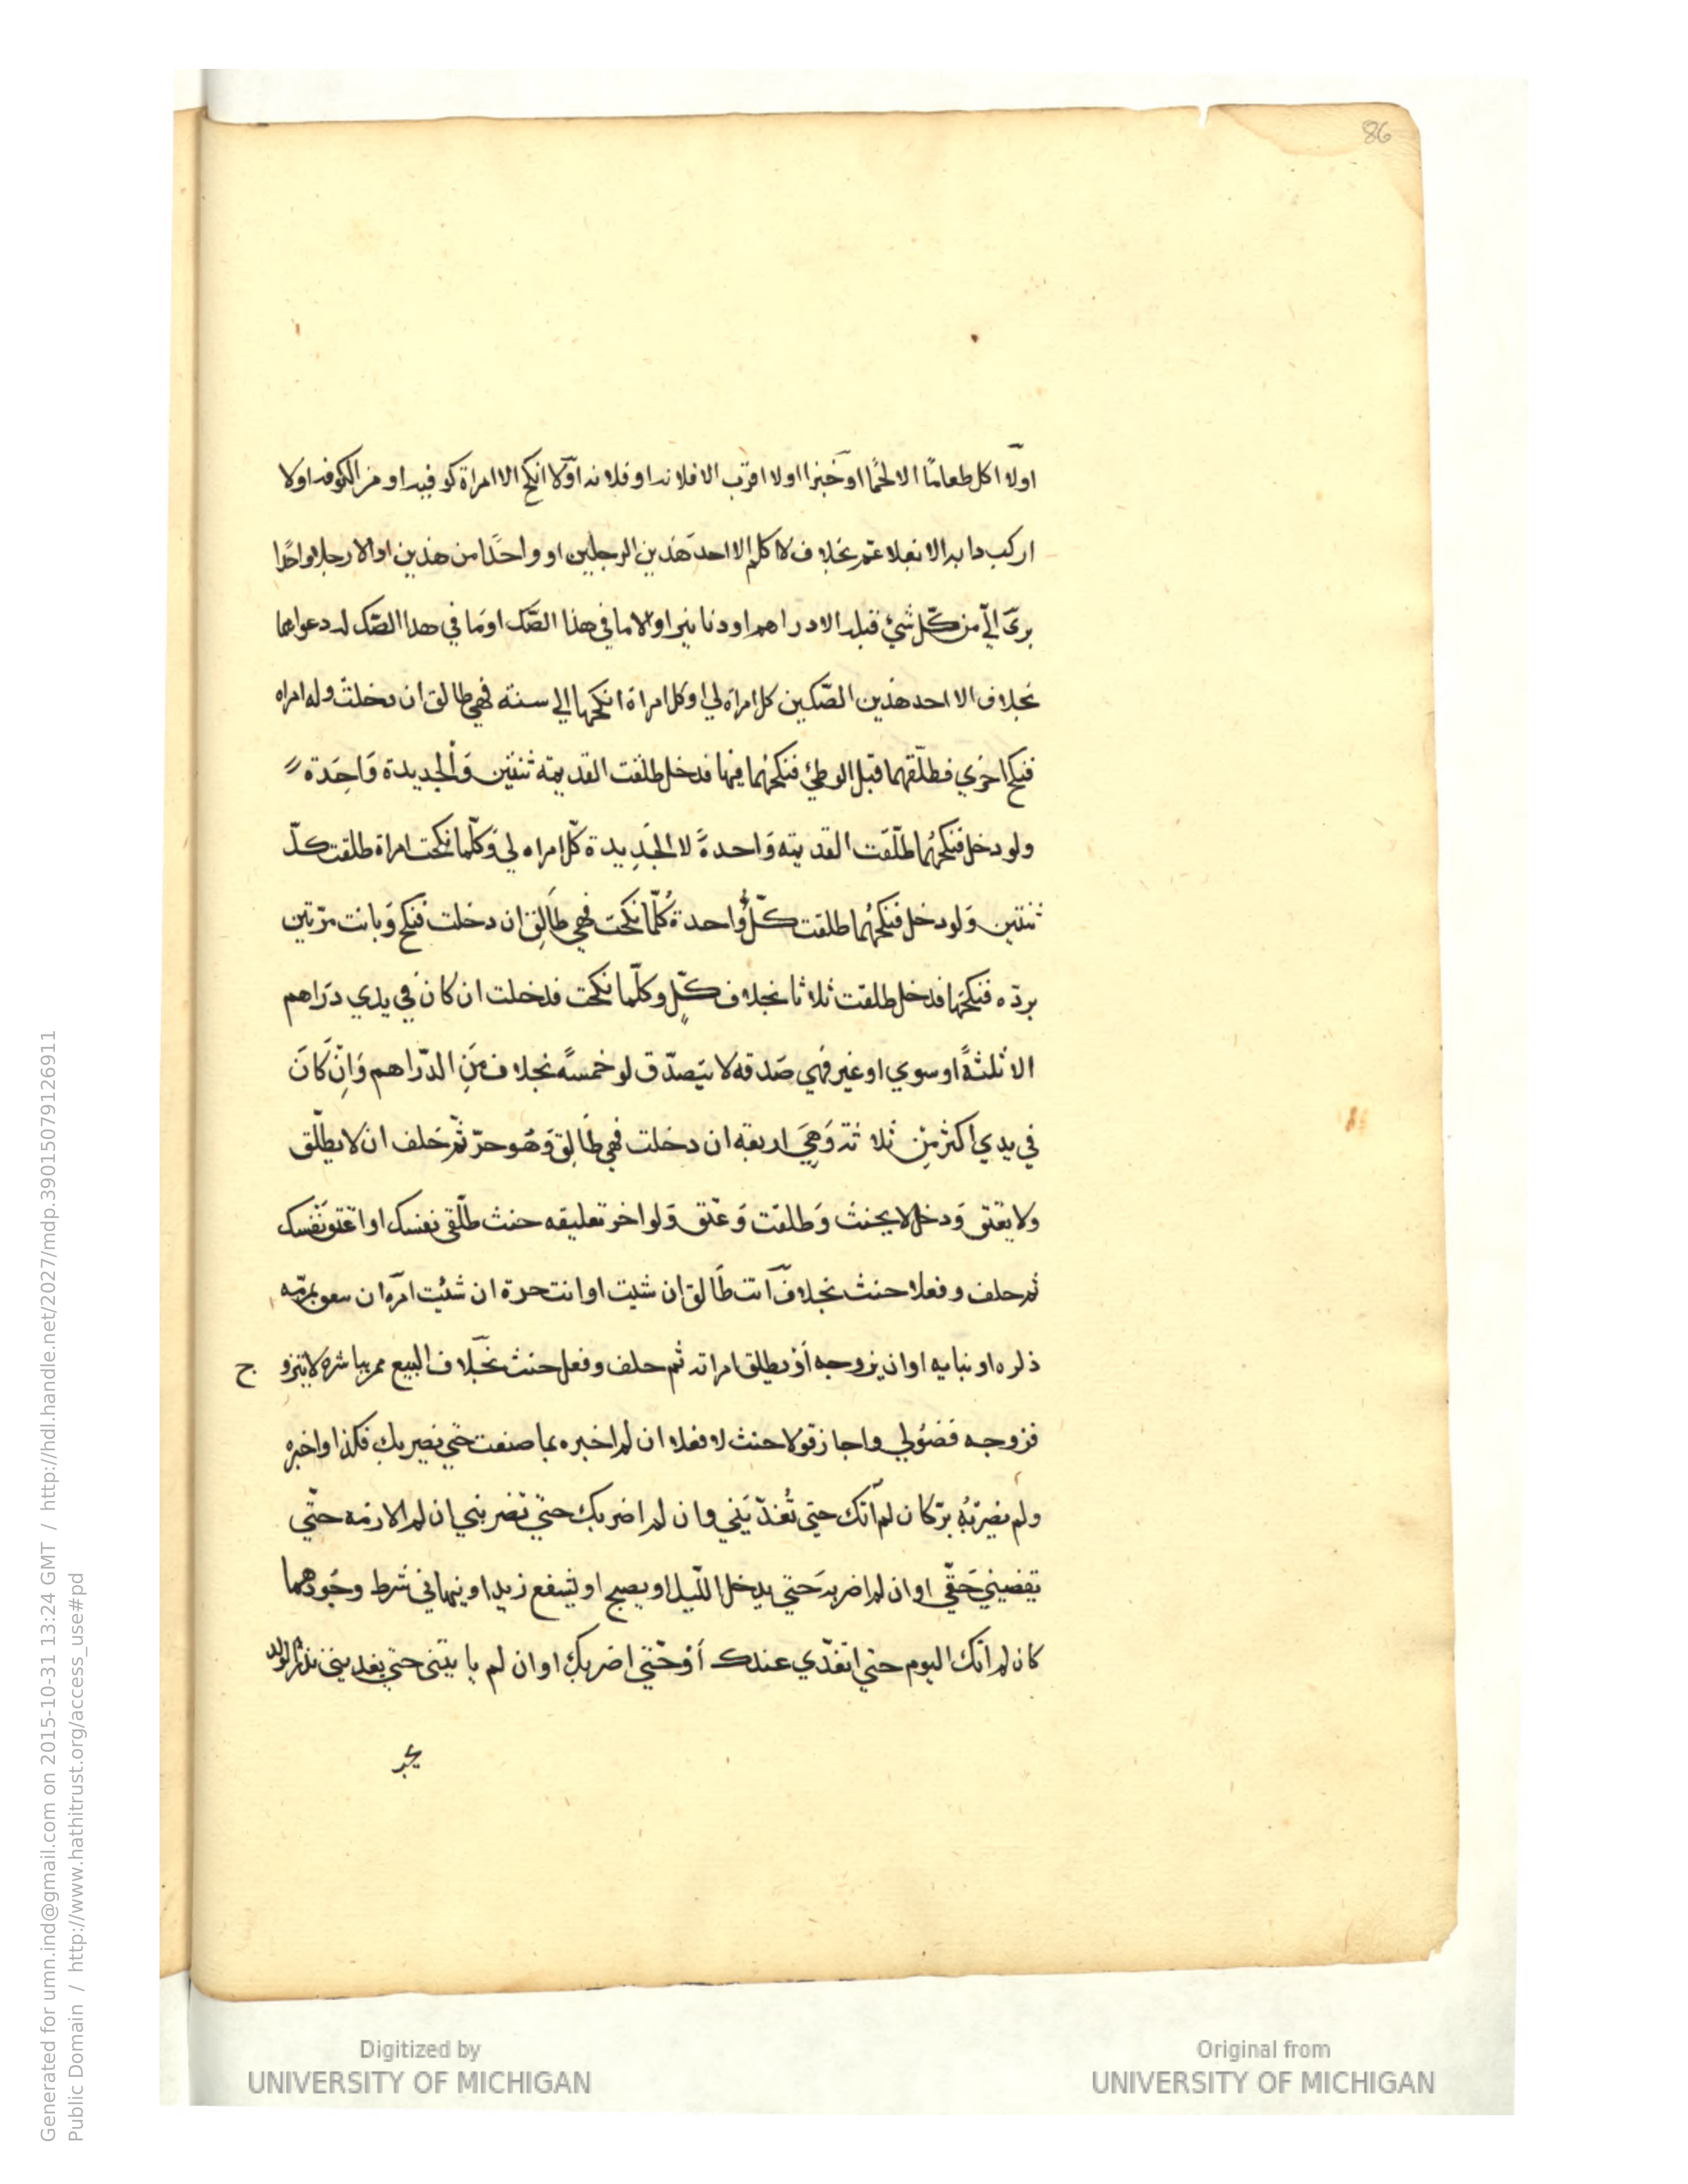 86
اولا اكل طعامًا الا لحمًا او خبزا اولا اقرب الا فلانه او فلانه اولا انكح الا امراة كوفيه او من الكوفه اولا
اركب دابه الا بغلا عمم بخلاف لا كلم الا احد هذين الرجلين او واحدًا من هذين او الا رجلا واحدًا
برئ اليّ من كل شيء قبله الا دراهم او دنانير او الا ما في هذا الصّك او ما في هذا الصّك له دعواهما
بخلاف الا احد هذين الصّكين كل امراة لي او كل امراة انكحها الي سنة فهي طالق ان دخلت وله امراه
فنكح اخري فطلّقهما قبل الوطئ فنكحهما فيها فدخل طلقت القديمته ثنتين وَالجديدة وَاحِدَة
ولو دخل فنكحهُما طلّقت القديمته وَاحدةً لا الجَدِيدة كلّ امراه لي وَكلّما نكحت امراة طلقت كلّ
ثنتين وَلو دخل فنكحهُما طلقت كلّ وُاحدة كُلّما نكحت فهي طَالِق ان دخلت فنكح وَبانت مرّتين
بردّه فنكحهَا فدخل طلقت ثلاثا بخلاف كلٍّ وكلّما نكحت فدخلت ان كان في يدي دَراهم
الا ثلثةً او سوي او غير فهي صَدقه لا يتصدّق لو خمسةً بخلاف مِنَ الدّراهم وَاِنْ كَانَ
في يدي اكثر مِنْ ثلاثة وَهِيَ اربعه ان دخلت فهي طَالِق وَهُو حرّ ثمّ حَلف ان لا يطلّق
ولا يعتق وَدخل لا يحنث وَطلقت وَعتق وَلو اخر تعليقه حنث طلّقي نفسك او اعتق نَفسك
ثم حلف وفعلا حنث بخلاف انت طَالق ان شيت او انت حرة ان شئت امره ان
ذلره او بنايه او ان يزوجه أوْ يطلق امراته ثم حلف وفعل حنث بخلاف البيع مر بباشره لا يتزو ج
فزوجه فضُولي واجاز قولا حنث لا فعلا ان لم اخبره بما صنعت حتي يضربك فكذا واخبره
ولم يضربْهُ برّ كان لم اتك حتي تُغدّيَني وان لم اضربك حتي تضربني ان لم الازمه حتّي
تقضيني حَقّي او ان لم اضربه حَتي يدخل اللّيل او يصبح او يشفع زيد او ينهاني شرط وجُودهما
كان لم اتك اليوم حتي اتغدّي عندك أوْ حَتّي اضربك او ان لم ياتيني حتي
Generated for umn.ind@gmail.com on 2015-10-31 13:24 GMT / http://hdl.handle.net/2027/mdp.39015079126911
Public Domain / http://www.hathitrust.org/access_use#pd
Digitized by
UNIVERSITY OF MICHIGAN
Original from
UNIVERSITY OF MICHIGAN